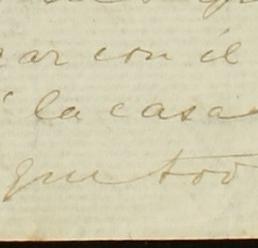 ar con él
la casa
que tod